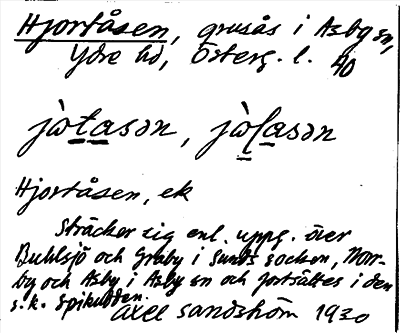 Hjortåsen, grusås i Asby sn,
Ydre hd, Österg. l. 40
jòtason, jòlason
Hjortåsen, ek
Sträcker sig enl. uppg. över
Buhlsjö och Graby i Sunds socken, Norr-
by och Asby i Asby sn och fortsättes i den
s.k. Spikudden.
Axel Sandström 1930